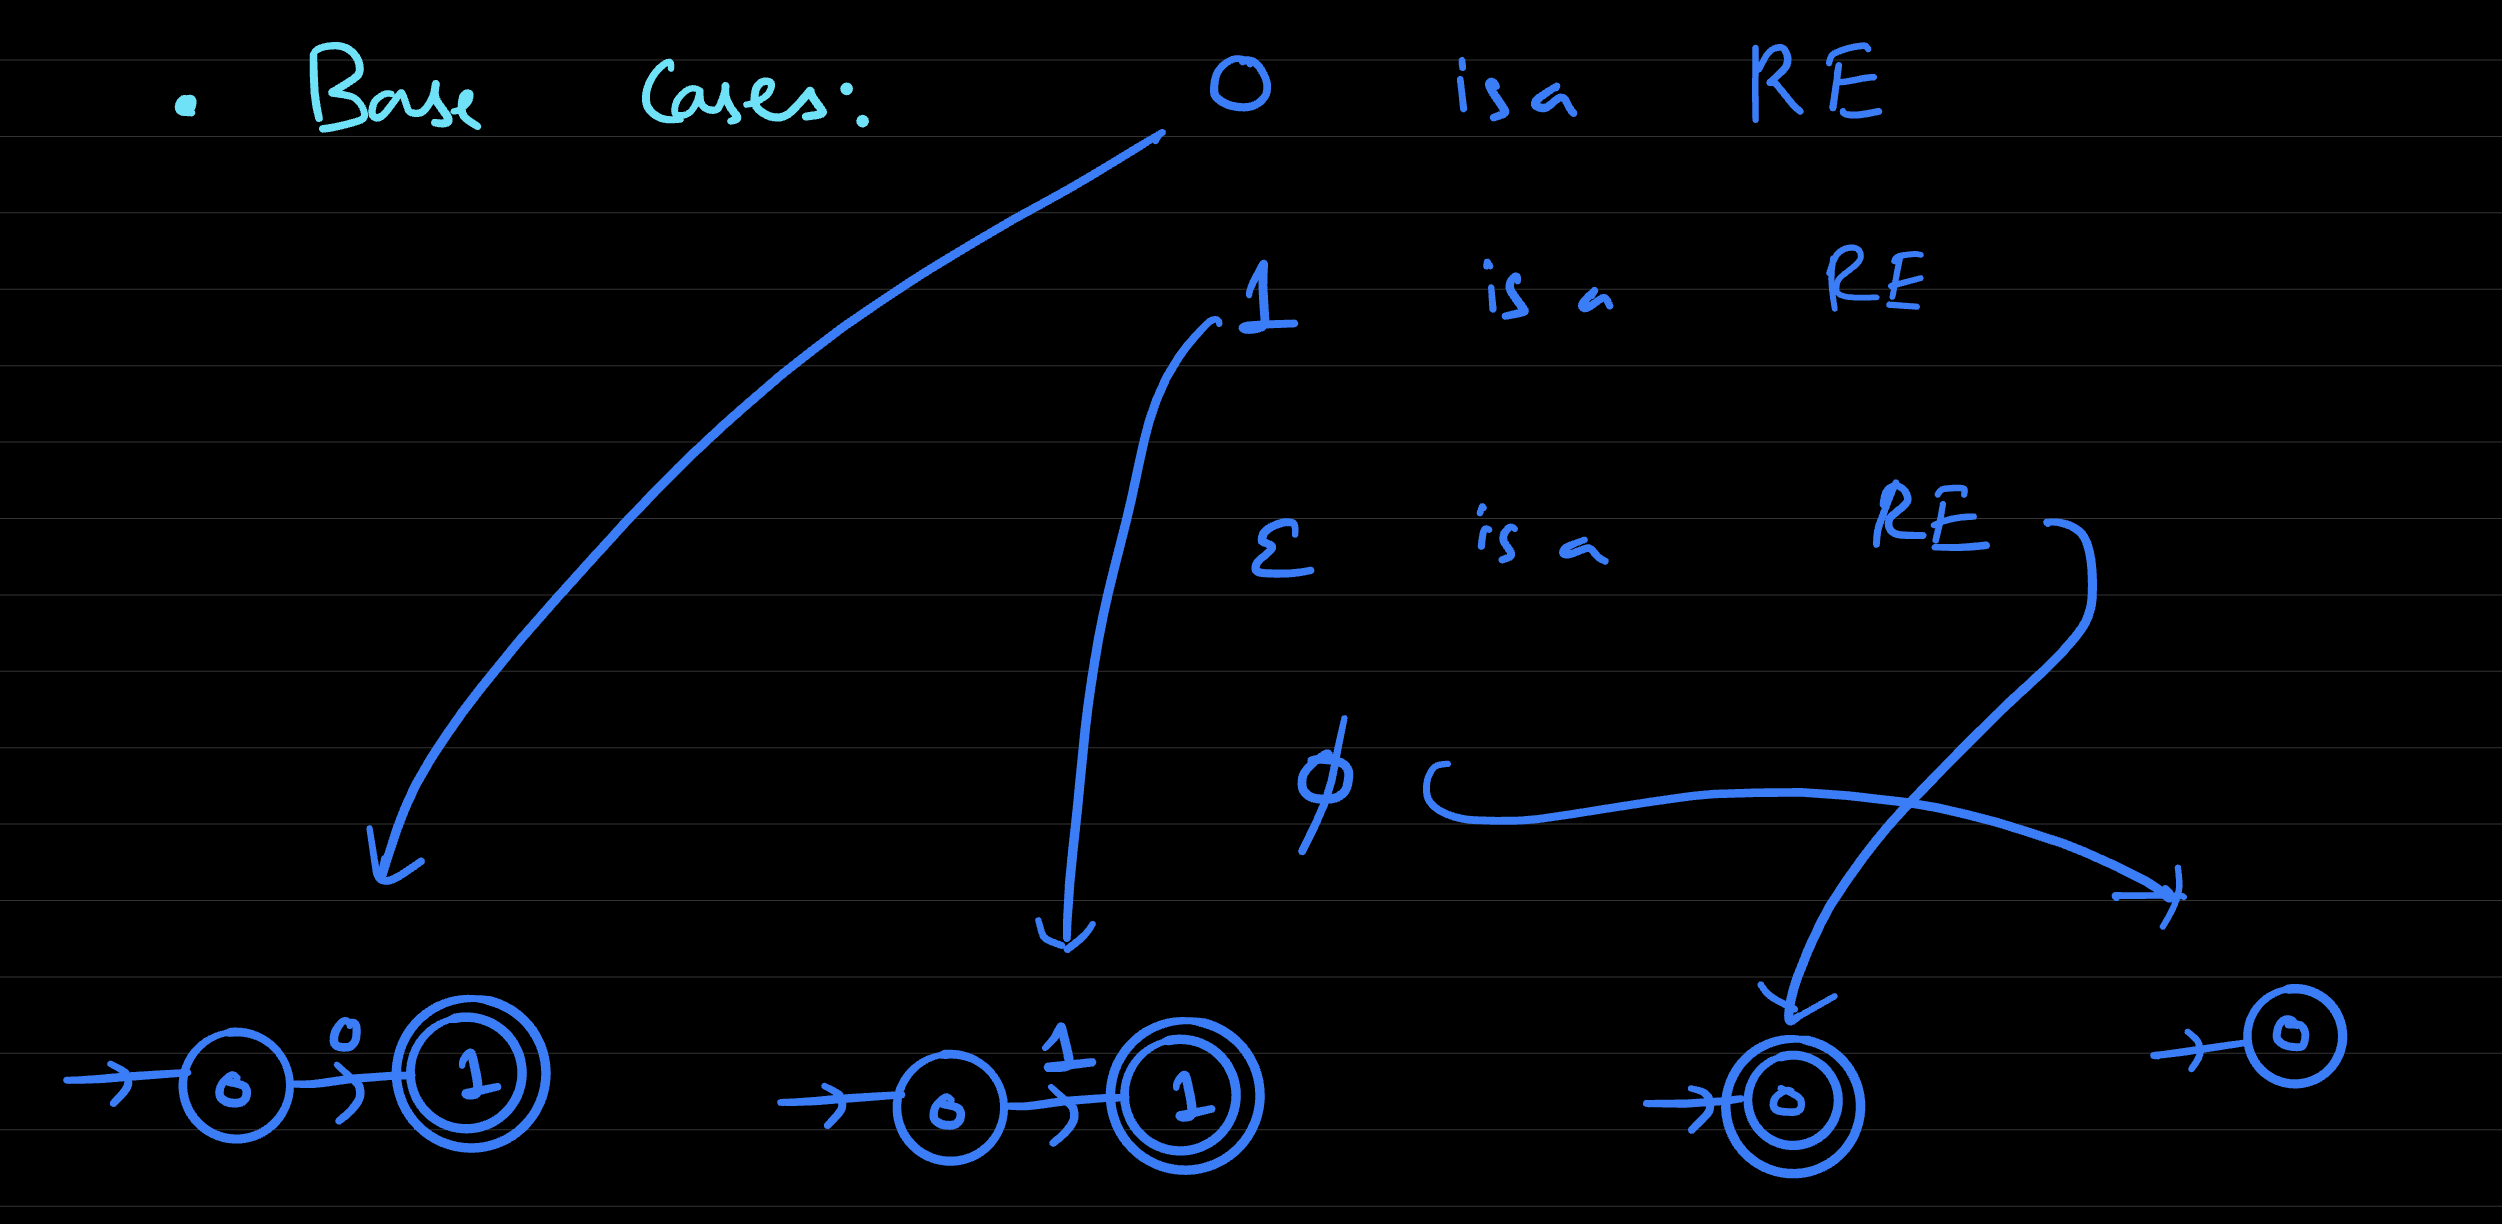 • Base Cases: 0 is a RE
1 is a RE
ε is a RE
ϕ
0 0 1
0 1 1
0
0